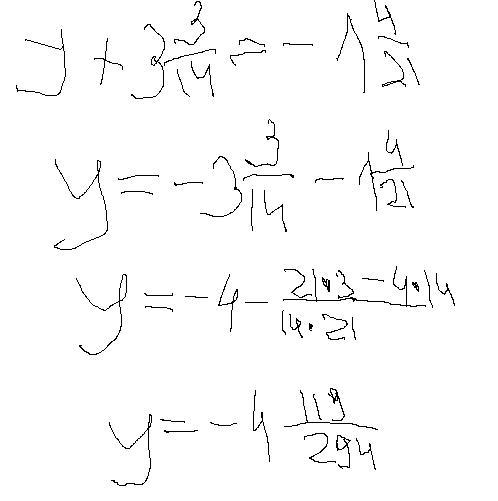 y + 3 3/14 = - 1 4/21
y = - 3 3/14 - 1 4/21
y = - 4 - (21·3 - 4·14)/(14·21)
y = - 4 119/294